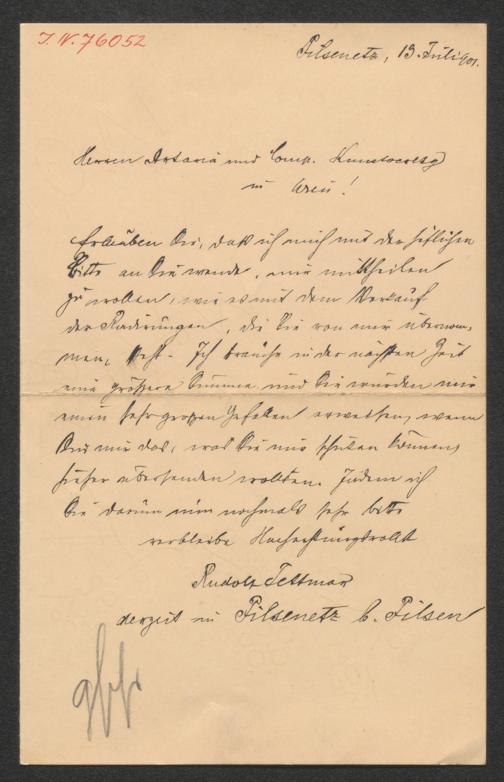 I. N. 76052
Pilsenetz, 13. Juli 901.
Herren Artaria und Comp. Kunstverlag
in Wien!
Erlauben Sie, daß ich mich mit der höflichen
Bitte an Sie wende, mir mittheilen
zu wollen, wie es mit dem Verkauf
der Radirungen, die Sie von mir übernom-
men, steht. Ich brauche in der nächsten Zeit
eine größere Summe und Sie würden mir
einen sehr großen Gefallen erweisen, wenn
Sie mir das, was Sie mir schulden können,
hieher übersenden wollten. Indem ich
Sie darum nun nochmals sehr bitte
verbleibe Hochachtungsvollst
Rudolf Tettmar
derzeit in Pilsenetz b. Pilsen